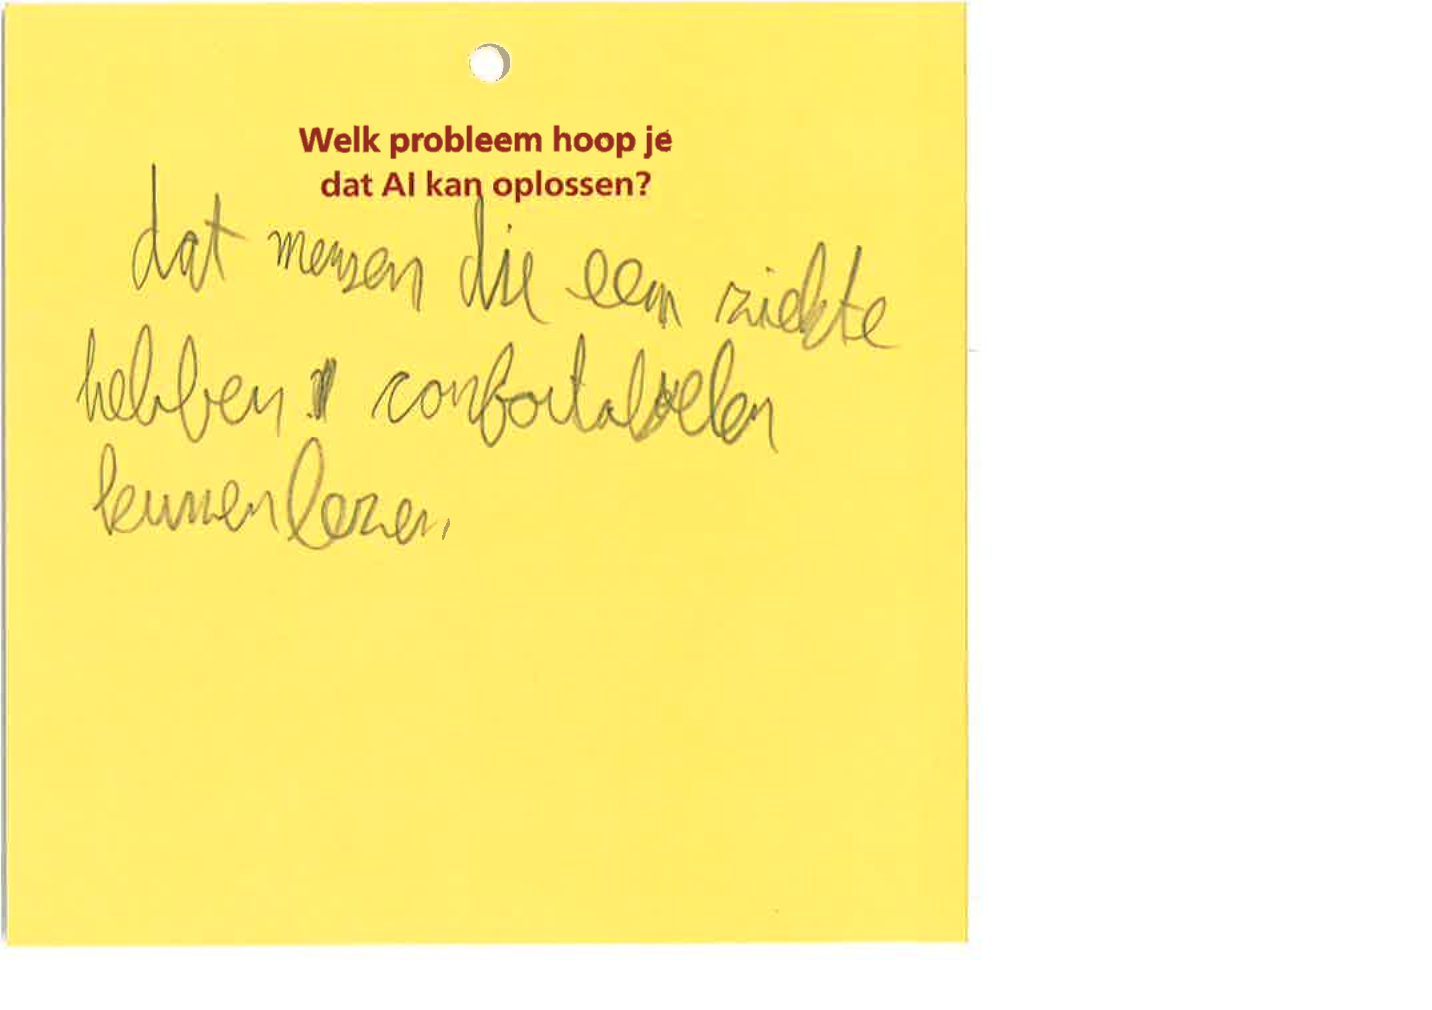 Welk probleem hoop je
dat AI kan oplossen?
dat mensen die een ziekte
hebben confortabelen
kunnen lezen